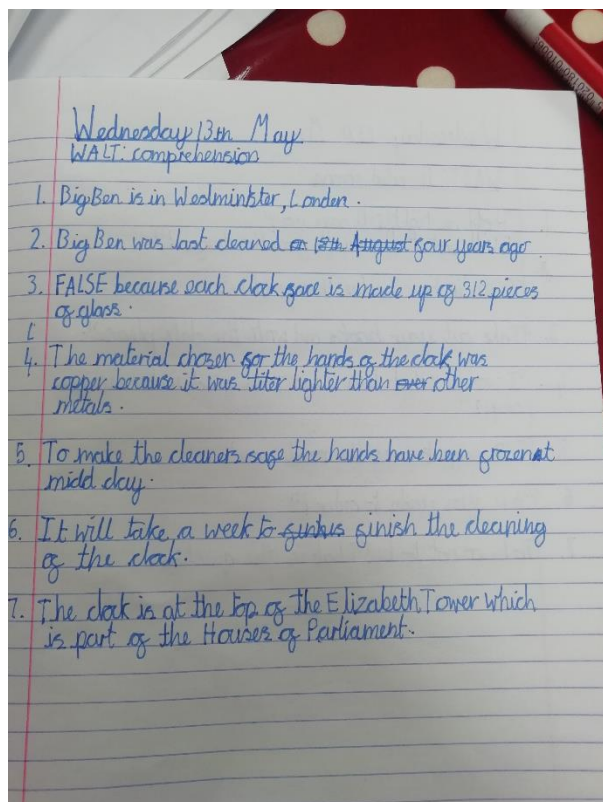 Wednesday 13th May
WALT: comprehension
1. Big Ben is in Westminster, London.
2. Big Ben was last cleaned on 18th August four years ago
3. FALSE because each clock face is made up of 312 pieces
of glass.
4. The material chosen for the hands of the clock was
copper because it was liter lighter than over other
metals.
5. To make the cleaners safe the hands have been frozen at
midd day.
6. It will take a week to finish the cleaning
of the clock.
7. The clock is at the top of the Elizabeth Tower which
is part of the Houses of Parliament.